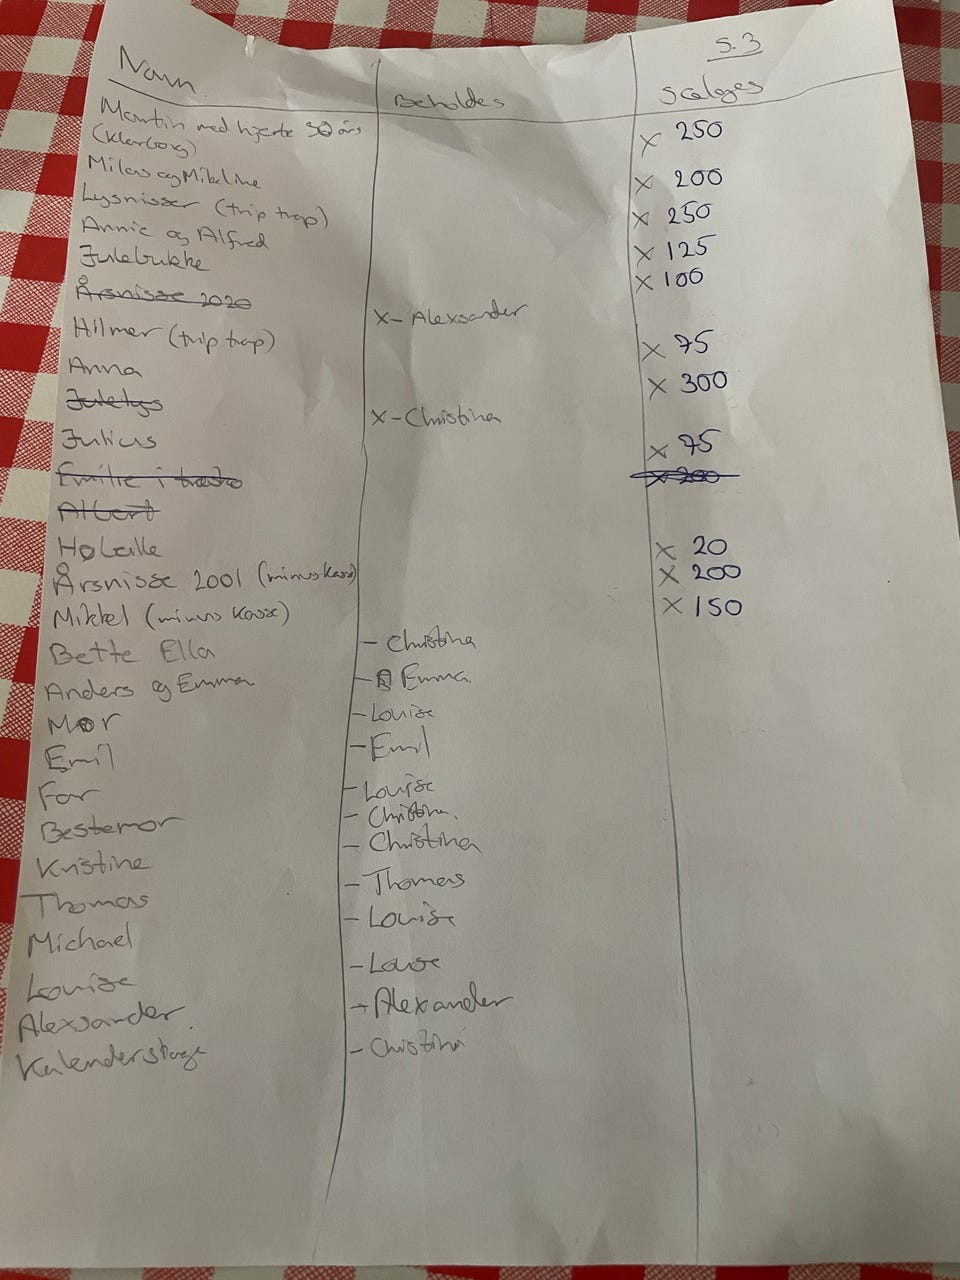 S.3
Navn Beholdes Sælges
Martin med hjerte 30 års X 250
(Klarborg)
Milas og Mikeline X 200
Lysnisser (trip trap) X 250
Annie og Alfred X 125
Julebukke X 100
Årsnisse 2020 X- Alexsander
Hilmer (trip trap) X 75
Anna X 300
Julelys X- Christina
Julius X 75
Emilie i træsko X 200
Albert
Holeille X 20
Årsnisse 2001 (minus kasse) X 200
Mikkel (minus kasse) X 150
Bette Ella - Christina
Anders og Emma - Emma
Mor - Louise
Emil - Emil
Far - Louise
Bestemor - Christina
Kristine - Christina
Thomas - Thomas
Michael - Louise
Louise - Louise
Alexsander - Alexander
Kalenderstage - Christina